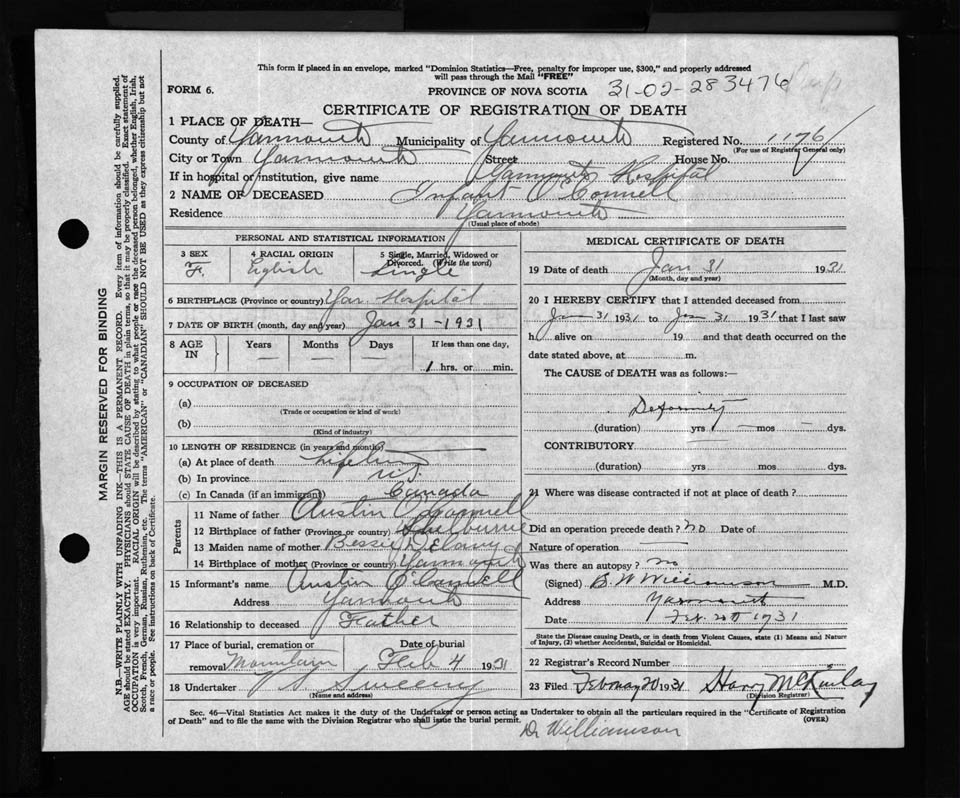 This form if placed in an envelope, marked "Dominion Statistics—Free, penalty for improper use, $300," and properly addressed
will pass through the Mail "FREE"
FORM 6.
PROVINCE OF NOVA SCOTIA 31-02-283476
CERTIFICATE OF REGISTRATION OF DEATH
1 PLACE OF DEATH—
County of Yarmouth Municipality of Yarmouth Registered No. 1176
(For use of Registrar General only)
City or Town Yarmouth Street House No.
If in hospital or institution, give name Yarmouth Hospital
2 NAME OF DECEASED Infant O'Connell
Residence Yarmouth
(Usual place of abode)
PERSONAL AND STATISTICAL INFORMATION
3 SEX 4 RACIAL ORIGIN 5 Single, Married, Widowed or
Divorced. (Write the word)
F. English Single
6 BIRTHPLACE (Province or country) Yar. Hospital
7 DATE OF BIRTH (month, day and year) Jan 31-1931
8 AGE IN Years Months Days If less than one day,
— — — 1 hrs. or min.
9 OCCUPATION OF DECEASED
(a)
(Trade or occupation or kind of work)
(b)
(Kind of industry)
10 LENGTH OF RESIDENCE (in years and months)
(a) At place of death Lifetime
(b) In province N.S.
(c) In Canada (if an immigrant) Canada
Parents
11 Name of father Austin O'Connell
12 Birthplace of father (Province or country) Shelburne
13 Maiden name of mother Bessie
14 Birthplace of mother (Province or country) Yarmouth
15 Informant's name Austin O'Connell
Address Yarmouth
16 Relationship to deceased Father
17 Place of burial, cremation or removal Mountain Date of burial Feb 4 1931
18 Undertaker V S Sweeny
(Name and address)
MEDICAL CERTIFICATE OF DEATH
19 Date of death Jan 31 1931
(Month, day and year)
20 I HEREBY CERTIFY that I attended deceased from
Jan 31 1931 to Jan 31 1931 that I last saw
h alive on 19 and that death occurred on the
date stated above, at m.
The CAUSE of DEATH was as follows:—
Deformity
(duration) yrs mos dys.
CONTRIBUTORY
(duration) yrs mos dys.
21 Where was disease contracted if not at place of death?
Did an operation precede death? no Date of
Nature of operation
Was there an autopsy? no
(Signed) B. W. Williamson M.D.
Address Yarmouth
Date Feb. 20 1931
State the Disease causing Death, or in death from Violent Causes, state (1) Means and Nature
of Injury, (2) whether Accidental, Suicidal or Homicidal.
22 Registrar's Record Number
23 Filed February 20 1931 Harry McKinlay
(Division Registrar)
Sec. 46—Vital Statistics Act makes it the duty of the Undertaker or person acting as Undertaker to obtain all the particulars required in the "Certificate of Registration
of Death" and to file the same with the Division Registrar who shall issue the burial permit. (OVER)
Dr Williamson
MARGIN RESERVED FOR BINDING
N.B.—WRITE PLAINLY WITH UNFADING INK—THIS IS A PERMANENT RECORD. Every item of information should be carefully supplied.
AGE should be stated EXACTLY. PHYSICIANS should STATE CAUSE OF DEATH in plain terms, so that it may be properly classified. Exact statement of
OCCUPATION is very important. RACIAL ORIGIN will be described by stating to what people or race the deceased person belonged, whether English, Irish,
Scotch, French, German, Russian, Ruthenian, etc. The terms "AMERICAN" or "CANADIAN" SHOULD NOT BE USED as they express citizenship but not
a race or people. See instructions on back of Certificate.